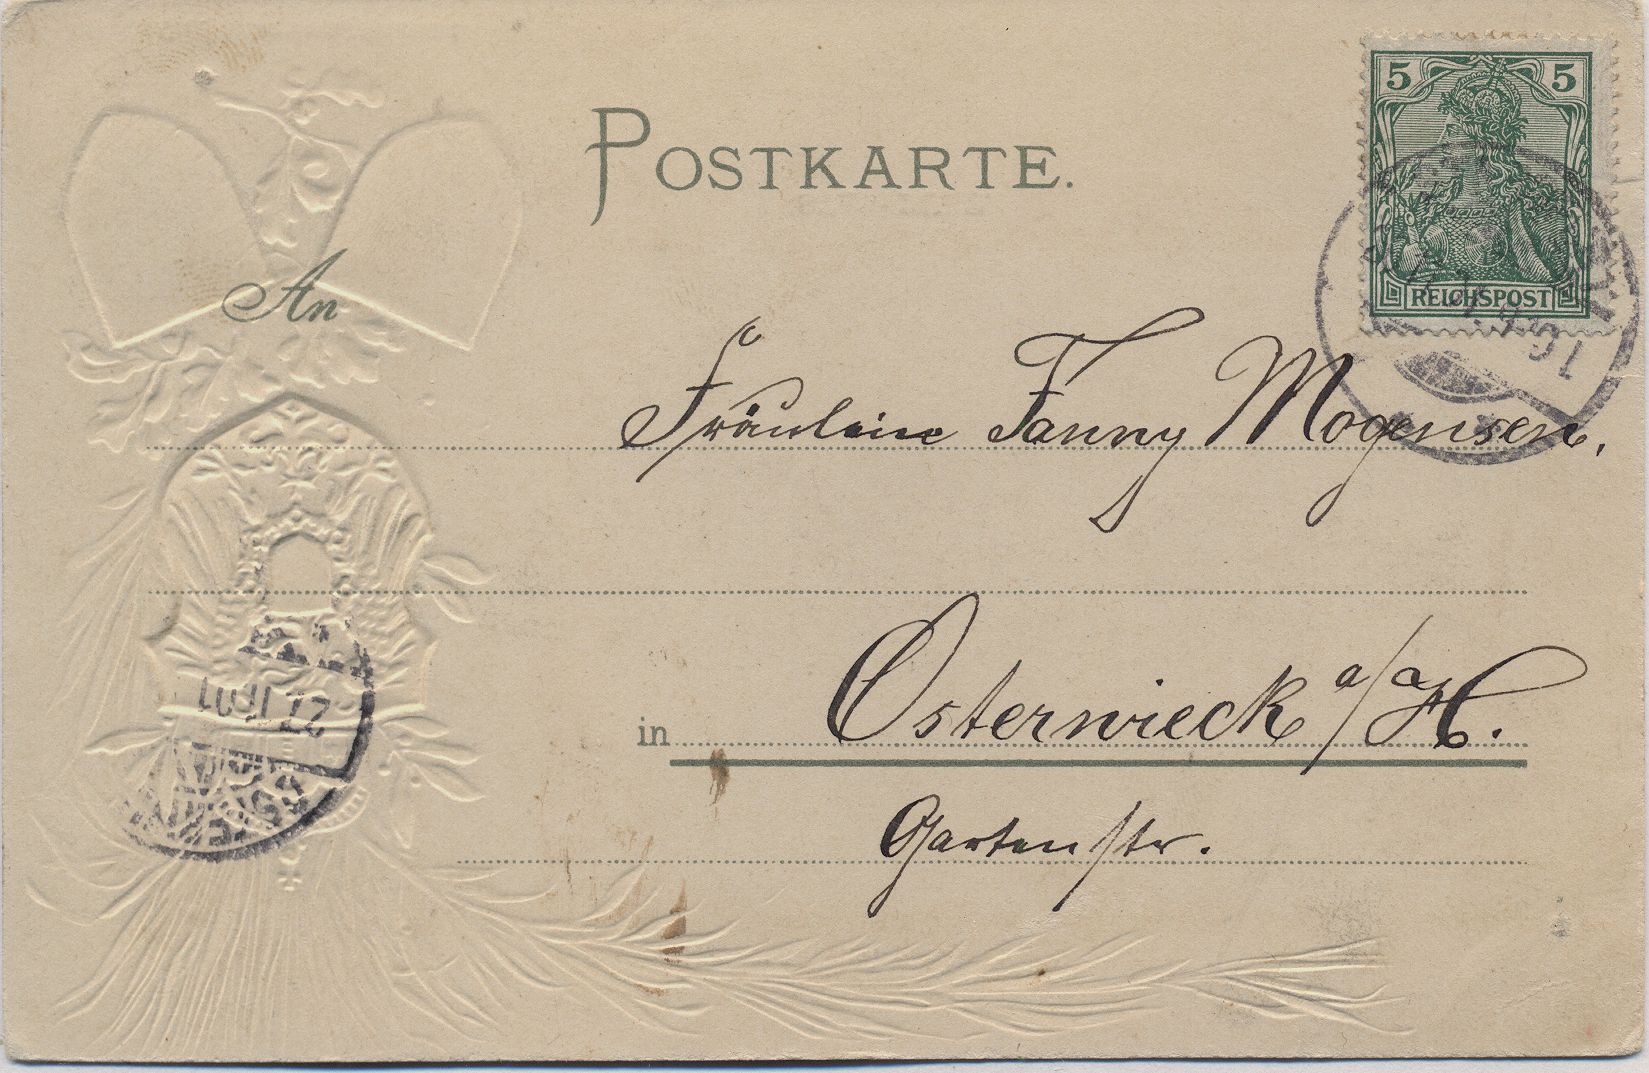 POSTKARTE.
5 5
REICHSPOST
An
Fräulein Fanny Mogensen,
in Osterwieck a/ a/H.
Gartenstr.